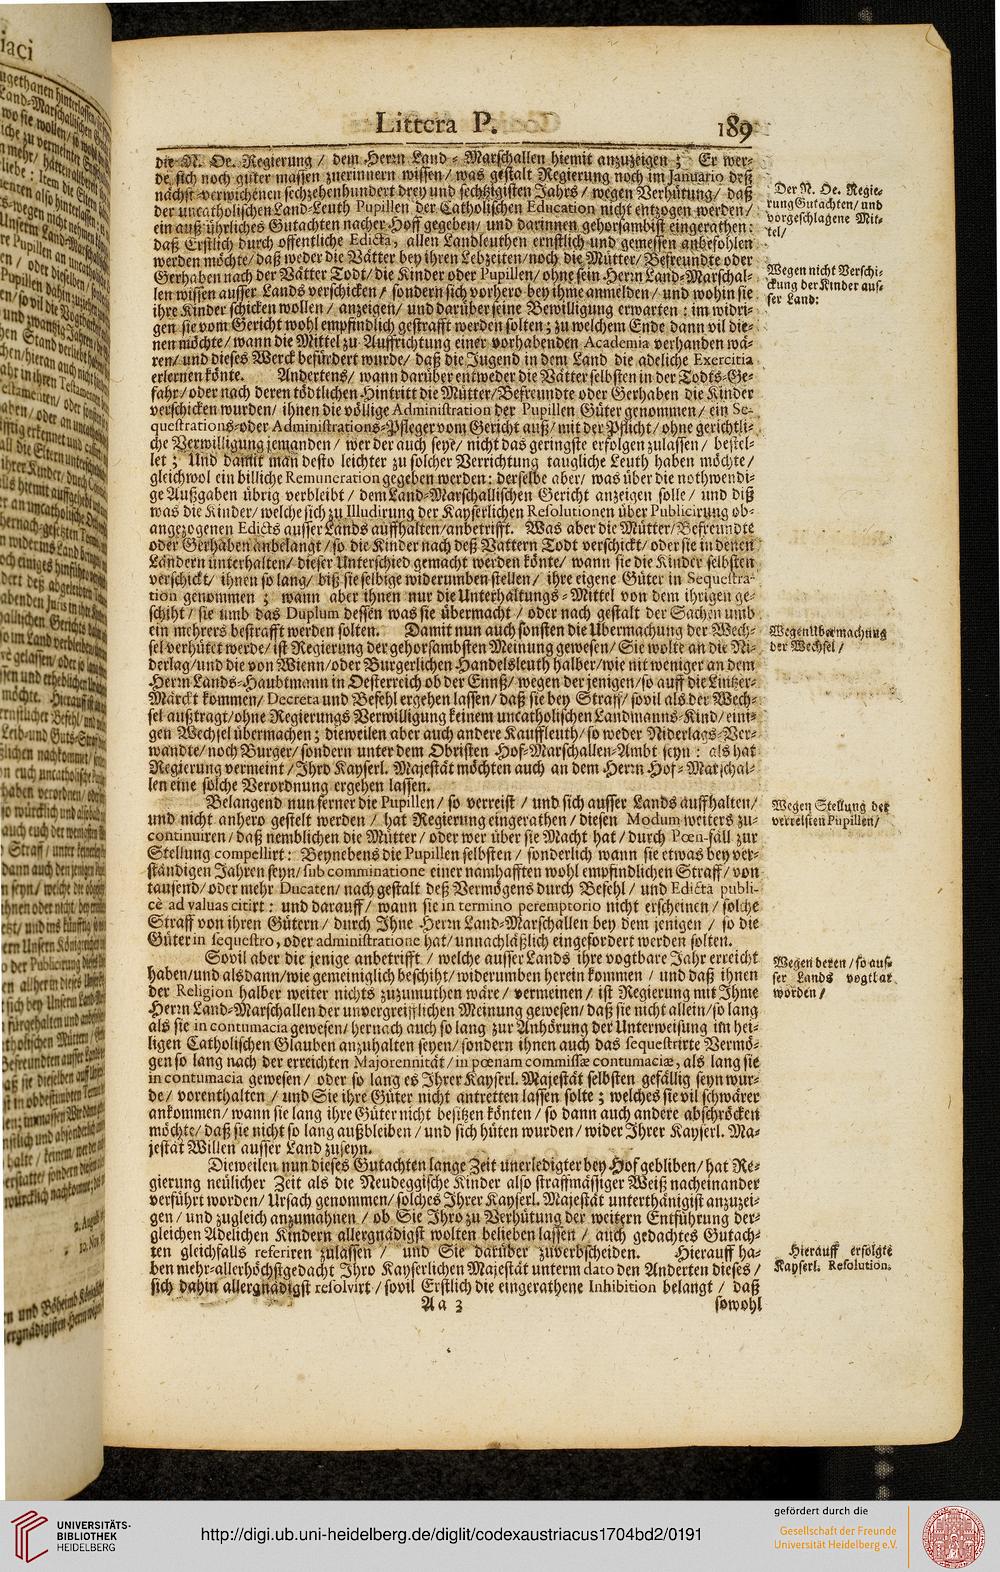 Littera P.
189
die N. Oe. Regierung / dem Herrn Land-Marschallen hiemit anzuzeigen; Er wer-
de sich noch guter massen zuerinnern wissen / was gestalt Regierung noch im Januario deß
nächst-verwichenen sechzehenhundert drey und sechtzigisten Jahrs / wegen Verhütung / daß
der uncatholischen Land-Leuth Pupillen der Catholischen Education nicht entzogen werden /
ein außführliches Gutachten nacher Hoff gegeben / und darinnen gehorsambist eingerathen:
daß Erstlich durch offentliche Edicta, allen Landleuthen ernstlich und gemessen anbefohlen
werden möchte / daß weder die Vätter bey ihren Lebzeiten / noch die Mütter / Befreundte oder
Gerhaben nach der Vätter Todt / die Kinder oder Pupillen / ohne sein Herrn Land-Marschal-
len wissen ausser Lands verschicken / sondern sich vorhero bey ihme anmelden / und wohin sie
ihre Kinder schicken wollen / anzeigen / und darüber seine Bewilligung erwarten: im widri-
gen sie vom Gericht wohl empfindlich gestrafft werden solten; zu welchem Ende dann vil die-
nen möchte / wann die Mittel zu Auffrichtung einer vorhabenden Academia verhanden wä-
ren / und dieses Werck befürdert wurde / daß die Jugend in dem Land die adeliche Exercitia
erlernen könte. Andertens / wann darüber entweder die Vätter selbsten in der Todts-Ge-
fahr / oder nach deren tödtlichen Hintritt die Mütter / Befreundte oder Gerhaben die Kinder
verschicken wurden / ihnen die völlige Administration der Pupillen Güter genommen / ein Se-
questrations- oder Administrations-Pfleger vom Gericht auß / mit der Pflicht / ohne gerichtli-
che Verwilligung jemanden / wer der auch seye / nicht das geringste erfolgen zulassen / bestel-
let; Und damit man desto leichter zu solcher Verrichtung taugliche Leuth haben möchte /
gleichwol ein billiche Remuneration gegeben werden: derselbe aber / was über die nothwendi-
ge Außgaben übrig verbleibt / dem Land-Marschallischen Gericht anzeigen solle / und diß
was die Kinder / welche sich zu Illudirung der Kayserlichen Resolutionen über Publicirung ob-
angezogenen Edicts ausser Lands auffhalten / anbetrifft. Was aber die Mütter / Befreundte
oder Gerhaben anbelangt / so die Kinder nach deß Vattern Todt verschickt / oder sie in denen
Ländern unterhalten / dieser Unterschied gemacht werden könte / wann sie die Kinder selbsten
verschickt / ihnen so lang / biß sie selbige widerumben stellen / ihre eigene Güter in Sequestra-
tion genommen; wann aber ihnen nur die Unterhaltungs-Mittel von dem ihrigen ge-
schiht / sie umb das Duplum dessen was sie übermacht / oder nach gestalt der Sachen umb
ein mehrers bestrafft werden solten. Damit nun auch sonsten die Übermachung der Wech-
sel verhütet werde / ist Regierung der gehorsambsten Meinung gewesen / Sie wolte an die Ni-
derlag / und die von Wienn / oder Burgerlichen Handelsleuth halber / wie nit weniger an dem
Herrn Lands-Haubtmann in Oesterreich ob der Ennß / wegen der jenigen / so auff die Lintzer-
Märckt kommen / Decreta und Befehl ergehen lassen / daß sie bey Straff / sovil als der Wech-
sel außtragt / ohne Regierungs Verwilligung keinem uncatholischen Landmanns-Kind / eini-
gen Wechsel übermachen; dieweilen aber auch andere Kauffleuth / so weder Niderlags-Ver-
wandte / noch Burger / sondern unter dem Obristen Hof-Marschallen-Ambt seyn: als hat
Regierung vermeint / Ihro Kayserl. Majestät möchten auch an dem Herrn Hof-Marschal-
len eine solche Verordnung ergehen lassen.
Belangend nun ferner die Pupillen / so verreist / und sich ausser Lands auffhalten /
und nicht anhero gestelt werden / hat Regierung eingerathen / diesen Modum weiters zu-
continuiren / daß nemblichen die Mütter / oder wer über sie Macht hat / durch Pœn-fäll zur
Stellung compellirt: Beynebens die Pupillen selbsten / sonderlich wann sie etwas bey ver-
ständigen Jahren seyn / sub comminatione einer namhafften wohl empfindlichen Straff / von
tausend / oder mehr Ducaten / nach gestalt deß Vermögens durch Befehl / und Edicta publi-
cè ad valuas citirt: und darauff / wann sie in termino peremptorio nicht erscheinen / solche
Straff von ihren Gütern / durch Ihne Herrn Land-Marschallen bey dem jenigen / so die
Güter in sequestro, oder administratione hat / unnachläßlich eingefordert werden solten.
Sovil aber die jenige anbetrifft / welche ausser Lands ihre vogtbare Jahr erreicht
haben / und alsdann / wie gemeiniglich beschiht / widerumben herein kommen / und daß ihnen
der Religion halber weiter nichts zuzumuthen wäre / vermeinen / ist Regierung mit Ihme
Herrn Land-Marschallen der unvergreifflichen Meinung gewesen / daß sie nicht allein / so lang
als sie in contumacia gewesen / hernach auch so lang zur Anhörung der Unterweisung im hei-
ligen Catholischen Glauben anzuhalten seyen / sondern ihnen auch das sequestrirte Vermö-
gen so lang nach der erreichten Majorennität / in pœnam commissæ contumaciæ, als lang sie
in contumacia gewesen / oder so lang es Ihrer Kayserl. Majestät selbsten gefällig seyn wur-
de / vorenthalten / und Sie ihre Güter nicht antretten lassen solte; welches sie vil schwärer
ankommen / wann sie lang ihre Güter nicht besitzen könten / so dann auch andere abschröcken
möchte / daß sie nicht so lang außbleiben / und sich hüten wurden / wider Ihrer Kayserl. Ma-
jestät Willen ausser Land zuseyn.
Dieweilen nun dieses Gutachten lange Zeit unerledigter bey Hof gebliben / hat Re-
gierung neulicher Zeit als die Neudeggische Kinder also straffmässiger Weiß nacheinander
verführt worden / Ursach genommen / solches Ihrer Kayserl. Majestät unterthänigist anzuzei-
gen / und zugleich anzumahnen / ob Sie Ihro zu Verhütung der weitern Entführung der-
gleichen Adelichen Kindern allergnädigst wolten belieben lassen / auch gedachtes Gutach-
ten gleichfalls referiren zulassen / und Sie darüber zuverbscheiden. Hierauff ha-
ben mehr-allerhöchstgedacht Ihro Kayserlichen Majestät unterm dato den Anderten dieses /
sich dahin allergnädigst resolvirt / sovil Erstlich die eingerathene Inhibition belangt / daß
Aa 3
sowohl
Der N. Oe. Regie-
rung Gutachten / und
vorgeschlagene Mit-
tel /
Wegen nicht Verschi-
ckung der Kinder aus-
ser Land:
Wegen Übermachung
der Wechsel /
Wegen Stellung der
verreisten Pupillen /
Wegen deren / so aus-
ser Lands vogtbar
worden /
Hierauff erfolgte
Kayserl. Resolution.
UNIVERSITÄTS-
BIBLIOTHEK
HEIDELBERG
http://digi.ub.uni-heidelberg.de/diglit/codexaustriacus1704bd2/0191
gefördert durch die
Gesellschaft der Freunde
Universität Heidelberg e.V.